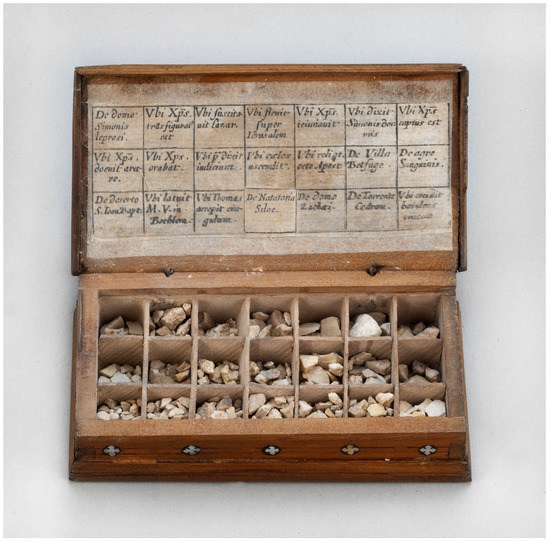 De domo
Simonis
leprosi.
Vbi Xp̃s.
trãsfigurat
est
Vbi suscita-
uit Lazar.
Vbi fleuit
super
Ierusalem
Vbi Xp̃s
ieiunauit
Vbi dixit
Simonis
Vbi Xp̃s
captus est
Vbi Xp̃s.
docuit ora-
re.
Vbi Xp̃s.
orabat.
Vbi
iudicium.
Vbi cælos
ascendit.
Vbi
octo Apost.
De Villa
Betfage.
De agro
Sanguinis.
De deserto
S. Ioan Bapt.
Vbi latuit
M. V. in
Bethleem.
Vbi Thomas
accepit cin-
gulum.
De Natatoria
Siloe.
De domo
Zachæi.
De Torrente
Cedron.
Vbi